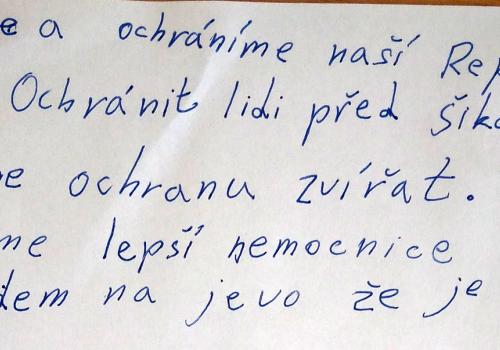 e a ochráníme naší Rep
Ochránit lidi před šik
e ochranu zvířat.
me lepší nemocnice
dem na jevo že je